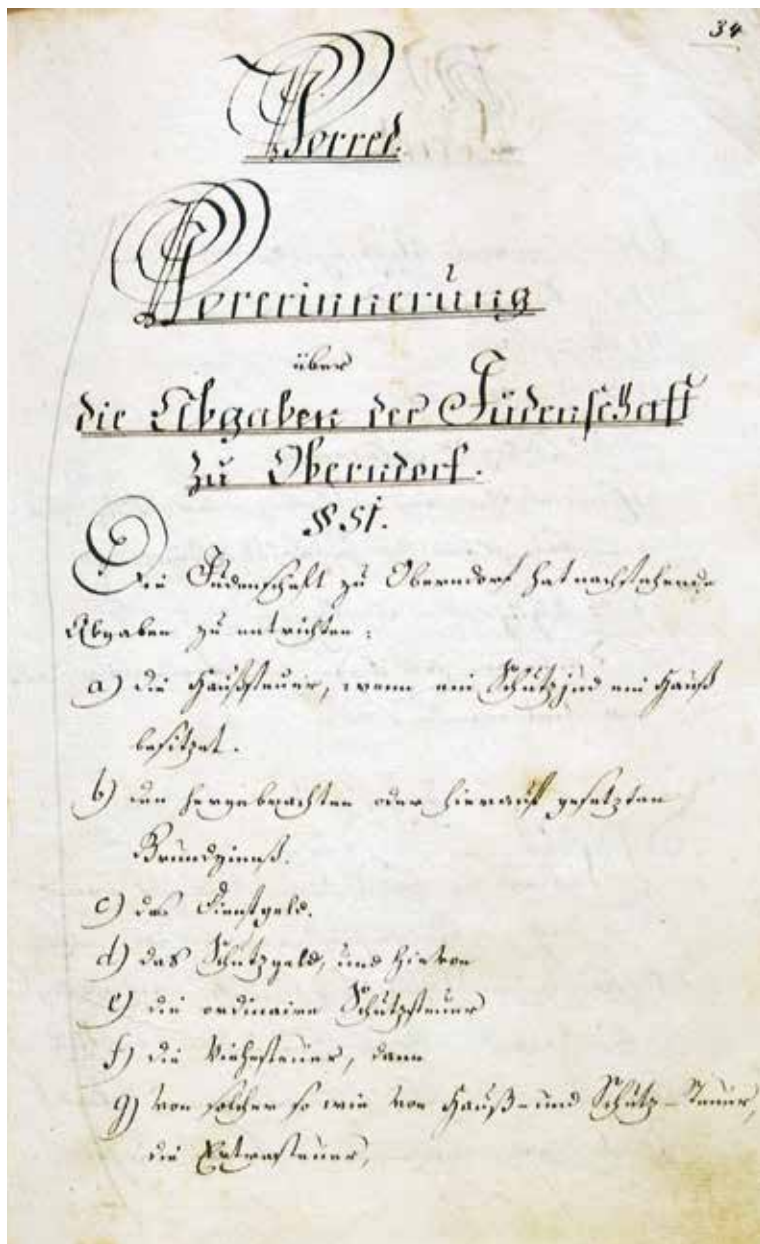 34
Vorred.
Vorerinnerung
über
die Abgaben der Judenschaft
zu Oberndorf.
§ 51.
Die Judenschaft zu Oberndorf hat nachstehende
Abgaben zu entrichten:
a) die Haußsteuer, wenn ein Schutzjud ein Hauß
besitzet.
b) den hergebrachten oder hierauf gesetzten
Grundzinnß.
c) das Dienstgeld.
d) das Schutzgeld, und hievon
e) die ordinaire Schutzsteuer
f) die Viehesteuer, dann
g) von solcher so wie von Hauß- und Schutz-Steuer,
die Extrasteuer,